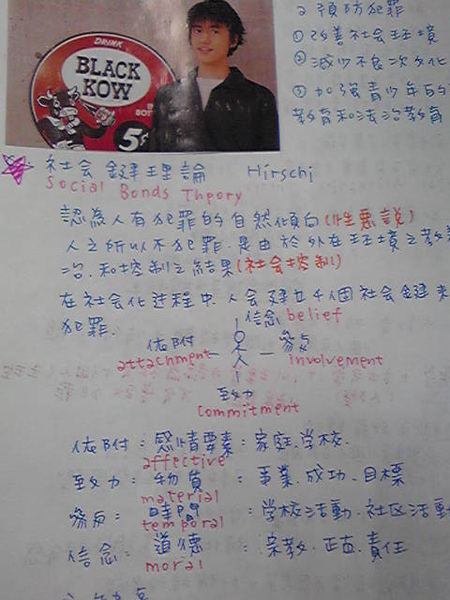 DRINK
BLACK
KOW
5¢
2 預防犯罪
① 改善社会环境
② 減少不良次文化
③ 加強青少年的
教育和法治教育
社会鍵理論 Hirschi
Social Bonds Theory
認為人有犯罪的自然傾向(性惡說)
人之所以不犯罪, 是由於外在环境之教
冶, 和控制之結果(社会控制)
在社会化过程中, 人会建立4個社会鍵來
犯罪.
信念 belief
依附 參与
attachment involvement
致力
commitment
依附: 感情要素: 家庭, 学校.
affective
致力: 物質: 事業, 成功, 目標
material
參与: 時間: 学校活動, 社区活動
temporal
信念: 道德: 宗教, 正直, 責任
moral